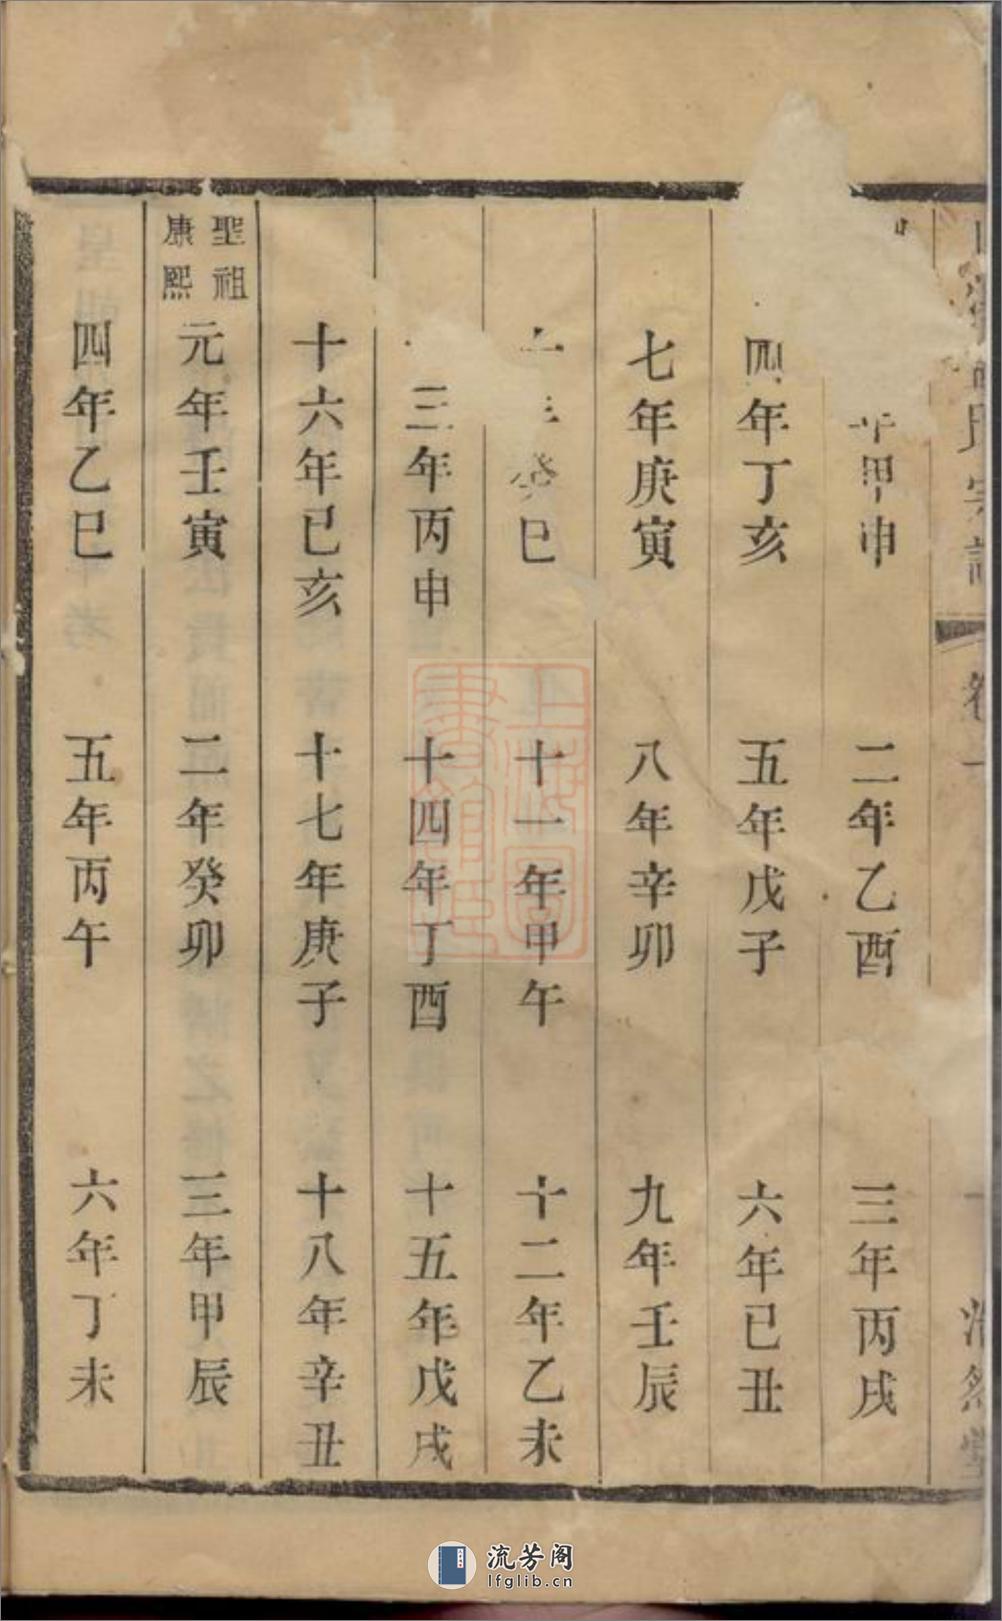 年甲申 二年乙酉 三年丙戌
四年丁亥 五年戊子 六年己丑
七年庚寅 八年辛卯 九年壬辰
年癸巳 十一年甲午 十二年乙未
三年丙申 十四年丁酉 十五年戊戌
十六年己亥 十七年庚子 十八年辛丑
聖祖
康熙
元年壬寅 二年癸卯 三年甲辰
四年乙巳 五年丙午 六年丁未
上海圖書館藏
流芳阁
lfglib.cn